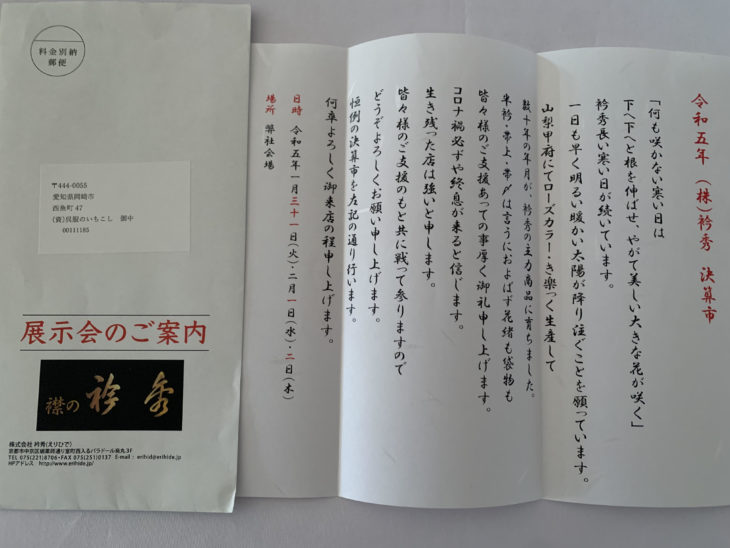 料金別納
郵便
〒444-0055
愛知県岡崎市
西魚町 47
(資)呉服のいちこし 御中
00111185
展示会のご案内
襟の 衿秀
株式会社 衿秀(えりひで)
京都市中京区蛸薬師通り室町西入るパラドール烏丸3F
TEL 075(221)8706・FAX 075(251)0137 E-mail : erihid@erihide.jp
HPアドレス http://www.erihide.jp/
令和五年 (株)衿秀 決算市
「何も咲かない寒い日は
下へ下へと根を伸ばせ、やがて美しい大きな花が咲く」
衿秀長い寒い日が続いています。
一日も早く明るい暖かい太陽が降り注ぐことを願っています。
山梨甲府にてローズカラー・き楽っく生産して
数十年の年月が、衿秀の主力商品に育ちました。
半衿・帯上・帯〆は言うにおよばず花緒も袋物も
皆々様のご支援あっての事厚く御礼申し上げます。
コロナ禍必ずや終息が来ると信じます。
生き残った店は強いと申します。
皆々様のご支援のもと共に戦って参りますので
どうぞよろしく、お願い申し上げます。
恒例の決算市を左記の通り行います。
何卒よろしく御来店の程申し上げます。
日時 令和五年一月三十一日(火)・二月一日(水)・二日(木)
場所 弊社会場